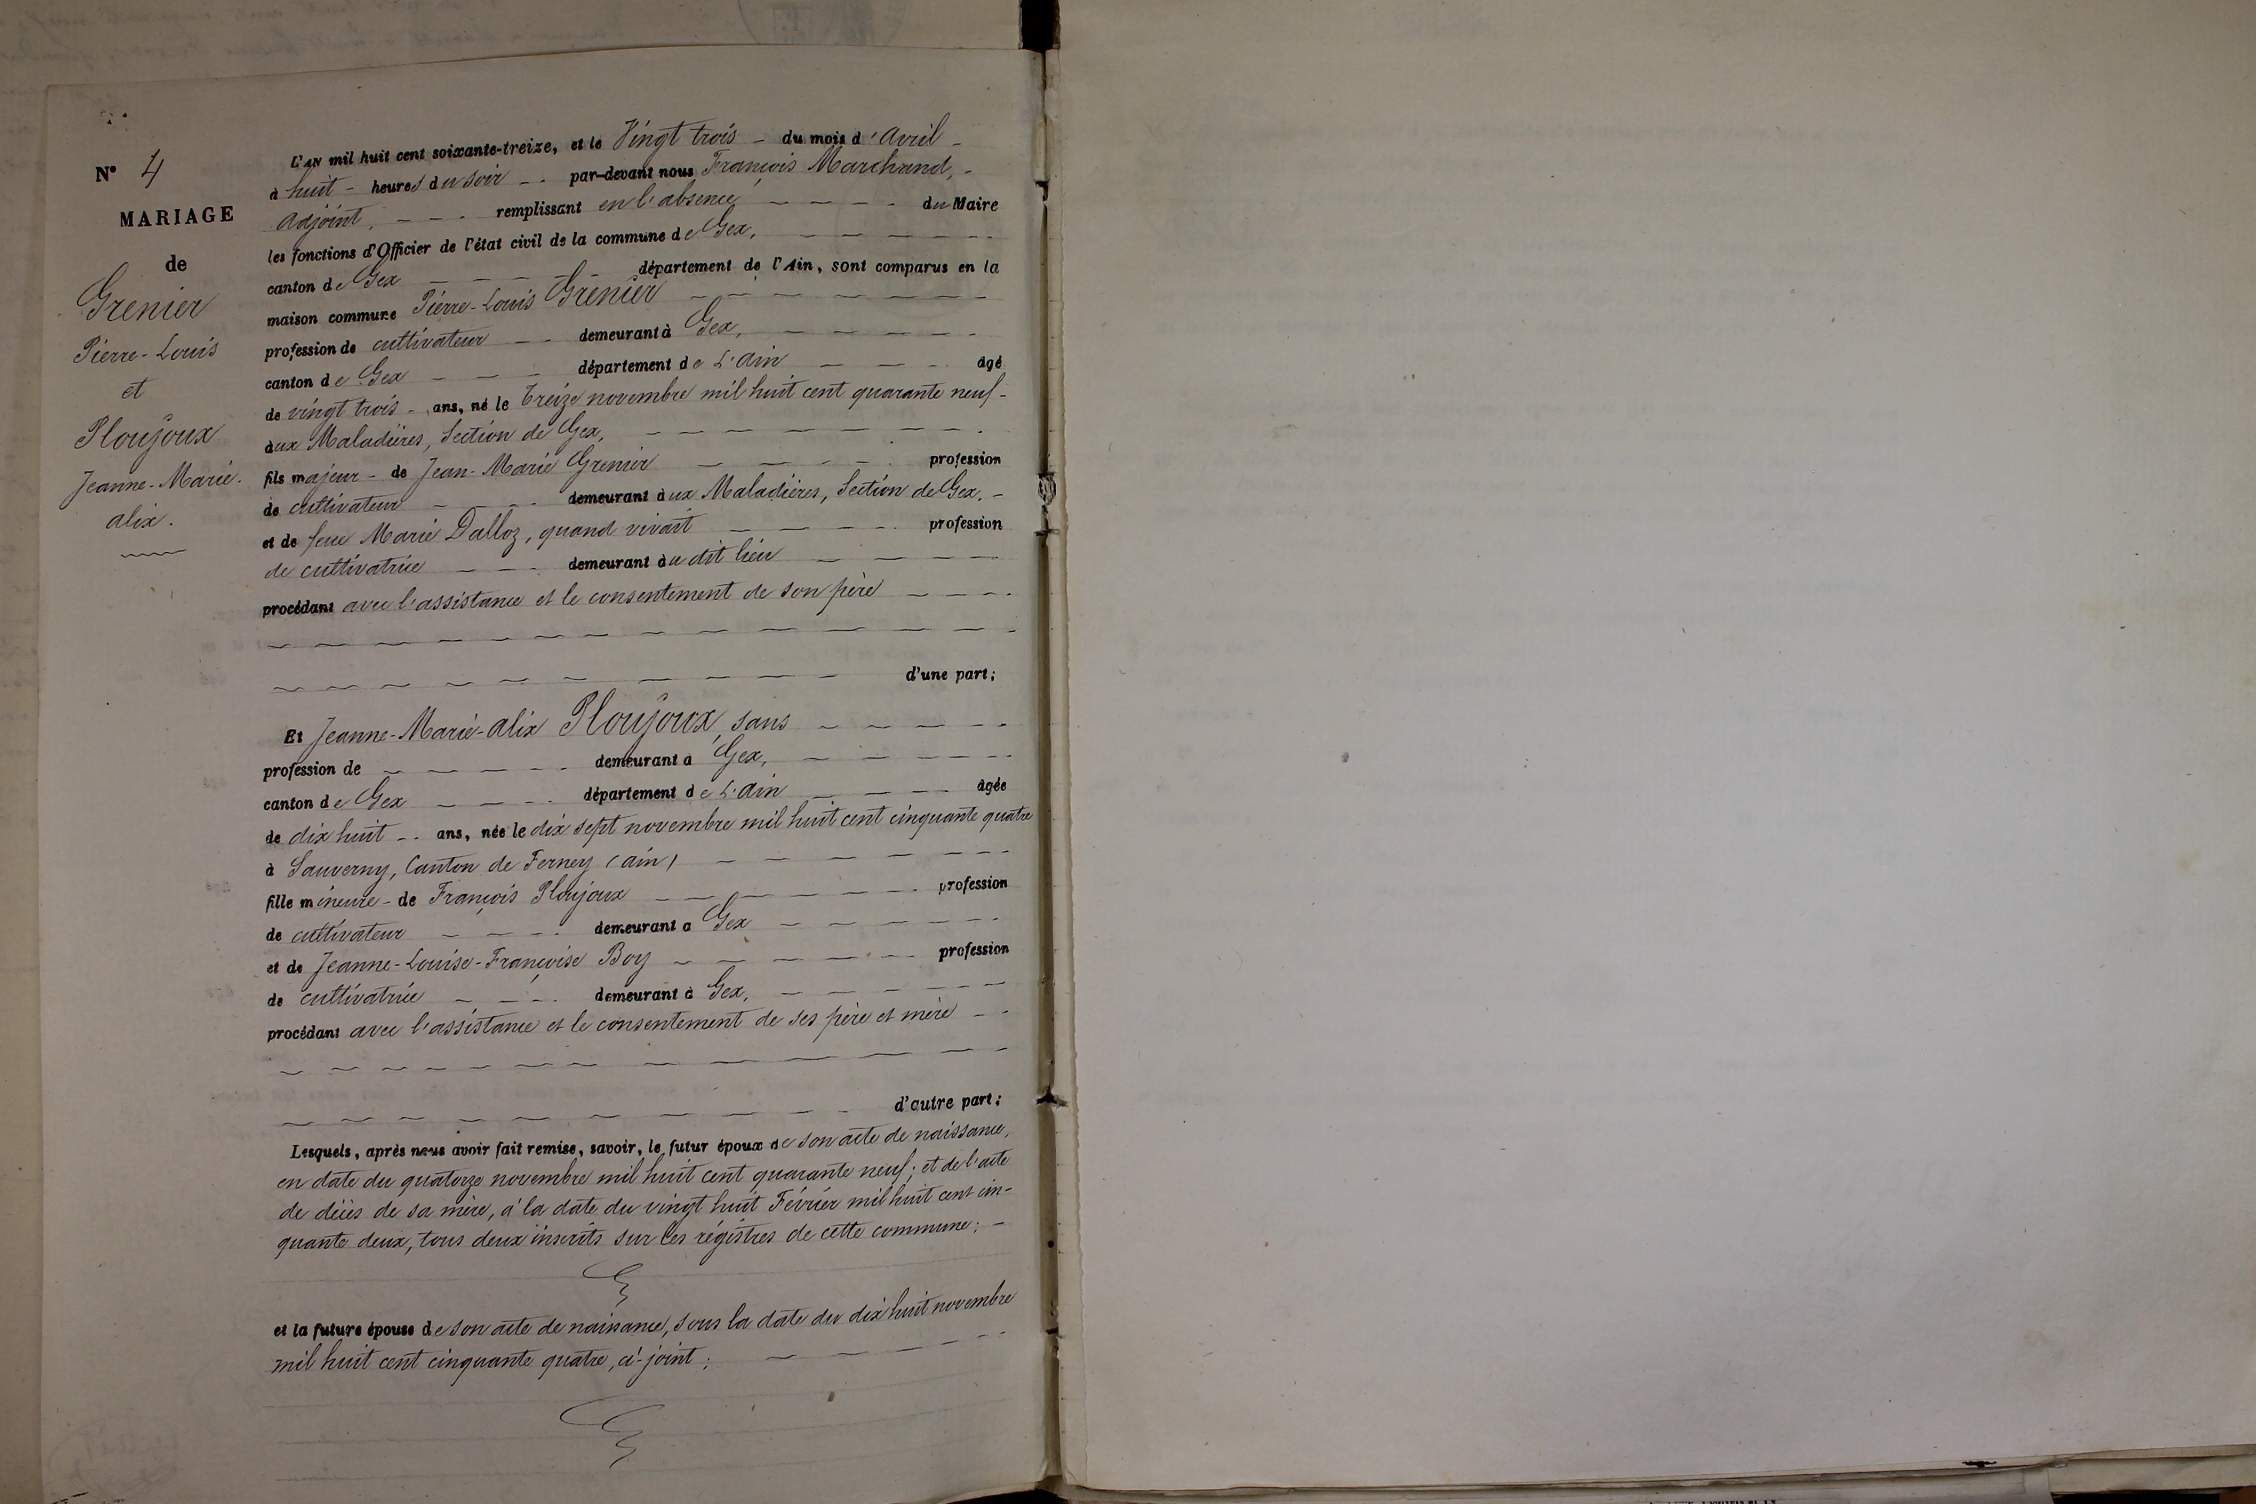 N° 4
MARIAGE
de
Grenier
Pierre-Louis
et
Ploujoux
Jeanne-Marie-
alix.
L'AN mil huit cent soixante-treize, et le Vingt trois - du mois d'avril -
à huit - heures du soir - - par-devant nous François Marchand, -
adjoint, - - - remplissant en l'absence - - - - du Maire
les fonctions d'Officier de l'état civil de la commune de Gex, - - - - -
canton de Gex - - - - - département de l'Ain, sont comparus en la
maison commune Pierre-Louis Grenier - - - - - - -
profession de cultivateur - - demeurant à Gex, - - - - -
canton de Gex - - - département de L'ain - - - âgé
de vingt trois - ans, né le treize novembre mil huit cent quarante neuf -
aux Maladières, Section de Gex, - - - - - - -
fils majeur - de Jean-Marie Grenier - - - - profession
de cultivateur - - - demeurant aux Maladières, Section de Gex. -
et de feue Marie Dalloz, quand vivait - - - - profession
de cultivatrice - - - demeurant au dit lieu - - - -
procédant avec l'assistance et le consentement de son père - - - -
d'une part;
Et Jeanne-Marie-alix Ploujoux, sans - - - - -
profession de - - - - - demeurant à Gex, - - - - -
canton de Gex - - - département de L'ain - - - âgée
de dix huit - - ans, née le dix sept novembre mil huit cent cinquante quatre
à Sauverny, Canton de Ferney (ain) - - - - - - -
fille mineure - de François Ploujoux - - - - - profession
de cultivateur - - - demeurant à Gex - - - - -
et de Jeanne-Louise-Françoise Boy - - - - - profession
de cultivatrice - - - demeurant à Gex, - - - - -
procédant avec l'assistance et le consentement de ses père et mère - -
d'autre part;
Lesquels, après nous avoir fait remise, savoir, le futur époux de son acte de naissance,
en date du quatorze novembre mil huit cent quarante neuf; et de l'acte
de décès de sa mère, à la date du vingt huit Février mil huit cent cin-
quante deux, tous deux inscrits sur les régistres de cette commune; -
et la future épouse de son acte de naissance, sous la date du dix huit novembre
mil huit cent cinquante quatre, ci-joint; - - - -